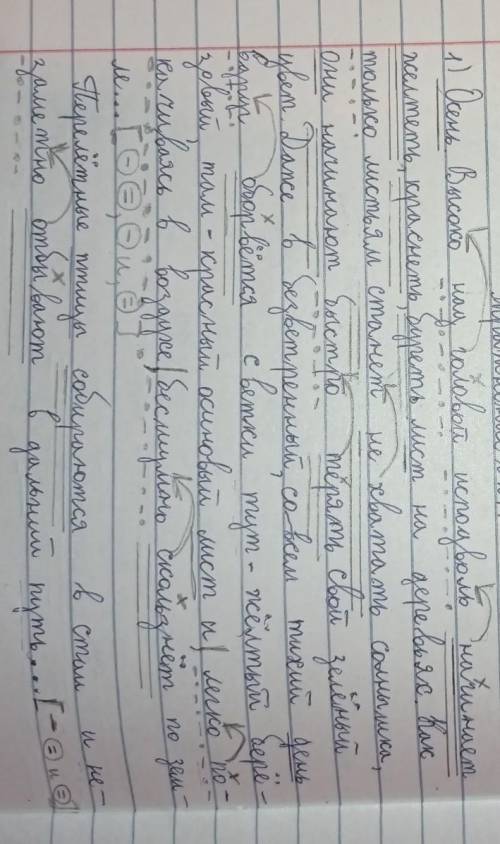 1) Осень. Высоко над головой исподволь начинает
желтеть, краснеть, буреть лист на деревьях. Как
только листьям станет не хватать солнышка,
они начинают быстро терять свой зелёный
цвет. Даже в безветренный, совсем тихий день
вдруг оборвётся с ветки тут - жёлтый берё-
зовый там - красный осиновый лист и, легко по-
качиваясь в воздухе, бесшумно скользнёт по зем-
ле... [- =, - и, =].
Перелётные птицы собираются в стаи и не-
заметно отбывают в дальний путь... [- = и =]